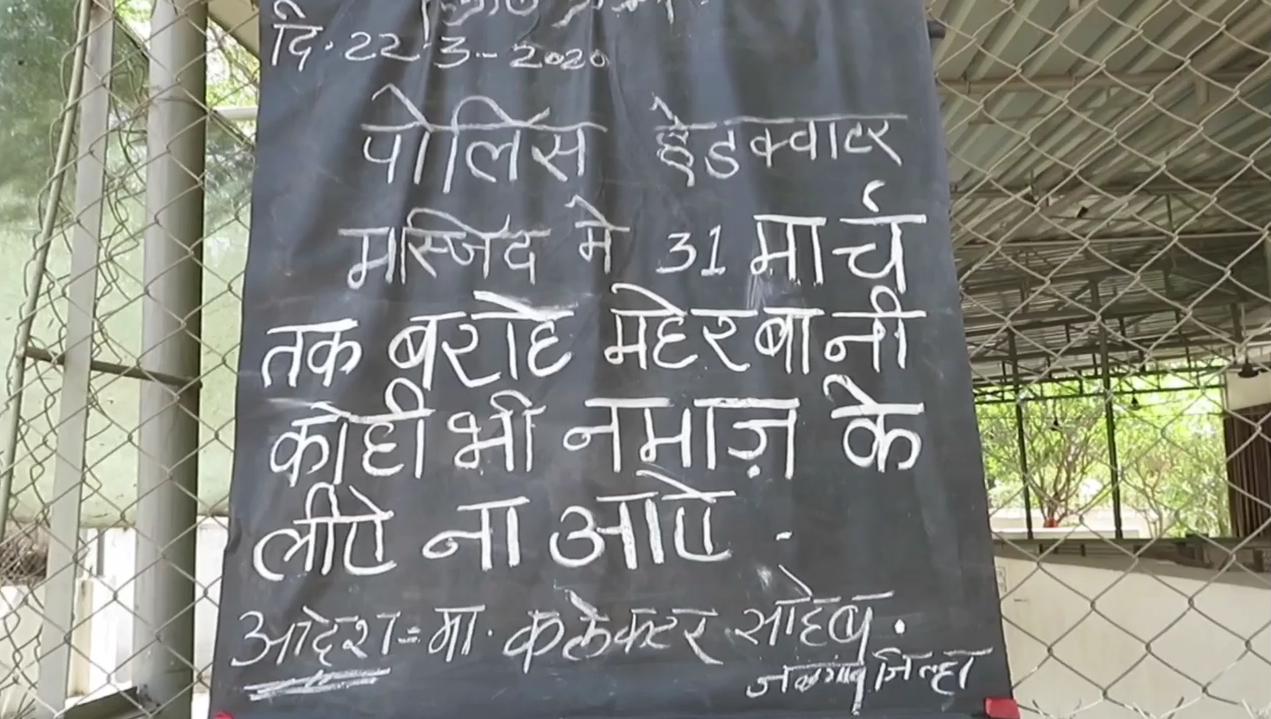 दि. 22-3-2020
पोलिस हेडक्वाटर
मस्जिद मे 31 मार्च
तक बराहे मेहेरबानी
कोही भी नमाज़ के
लीऐ ना आऐ.
आदेश - मा. कलेक्टर साहेब.
जळगाव जिल्हा